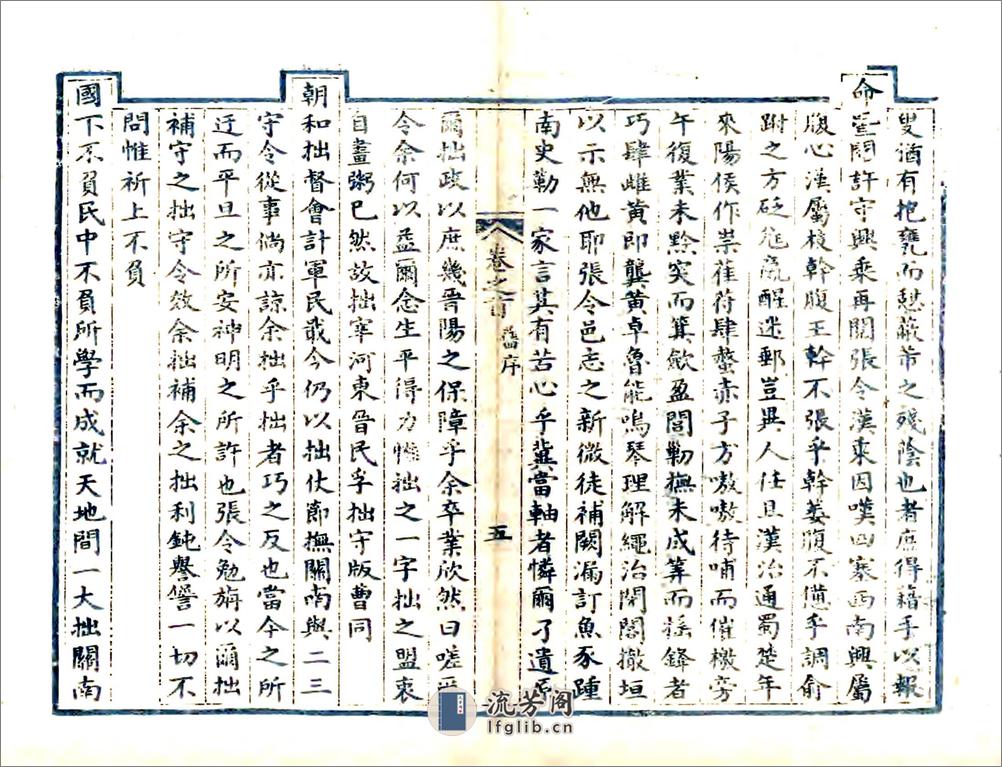 叟猶有抱甕而憩蔽芾之殘陰也者庶得藉手以報
命閱許守興乘再閱張令漢乘因嘆四塞西南興屬
腹心漢屬枝幹腹王幹不張乎幹萎腹不憊乎調俞
跗之方砭尫羸醒迷郵豈異人任且漢沔通蜀楚年
來陽侯作祟萑苻肆螫赤子方嗷嗷待哺而催檄旁
午復業未黔突而箕歛盈閭勦撫未成筭而摇鋒者
巧肆雌黃即龔黃卓魯能鳴琴理解繩治閉閤撤垣
以示無他耶張令邑志之新微徒補闕漏訂魚豕踵
南史勒一家言其有苦心乎冀當軸者憐爾孑遺原
爾拙政以庶幾晉陽之保障乎余卒業欣然曰嗟乎
令余何以益爾念生平得力惟拙之一字拙之盟衷
自晝粥已然故拙宰河東晉民孚拙守版曹同
朝和拙督會計軍民戢今仍以拙仗節撫關南與二三
守令從事倘亦諒余拙乎拙者巧之反也當今之所
迂而平旦之所安神明之所許也張令勉旃以爾拙
補守之拙守令效余拙補余之拙利鈍譽訾一切不
問惟祈上不負
國下不負民中不負所學而成就天地間一大拙關南
卷之首
舊序
五
流芳阁
lfglib.cn